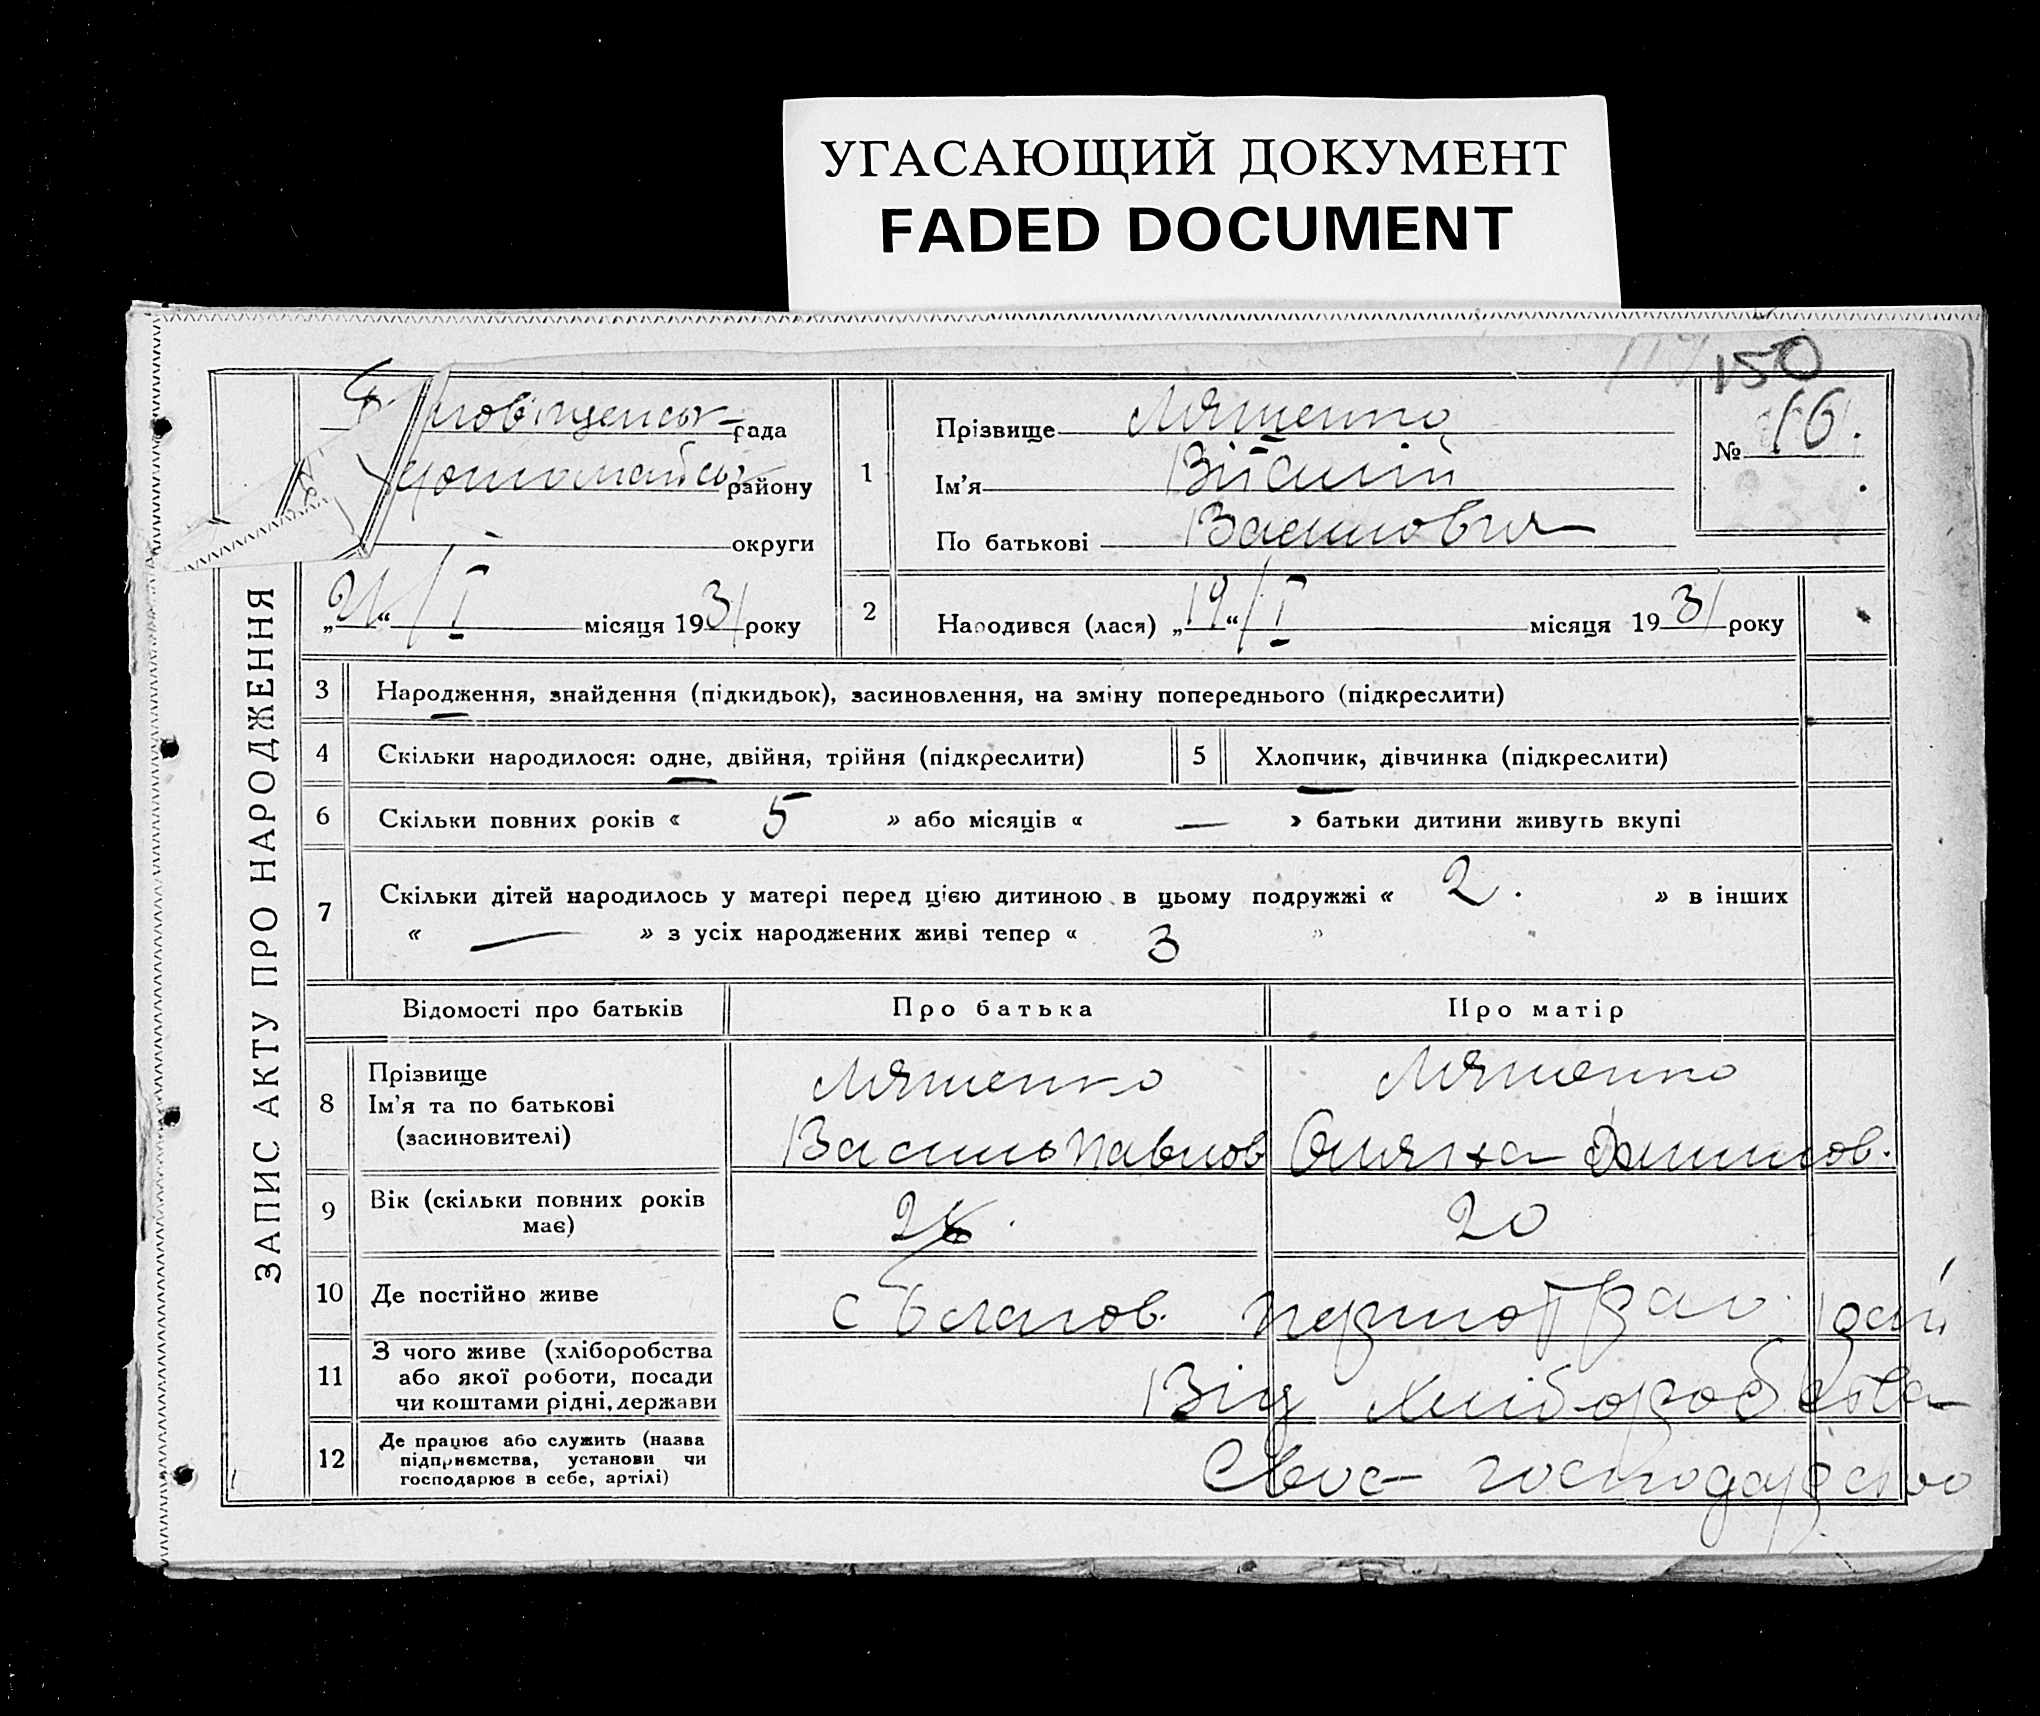 УГАСАЮЩИЙ ДОКУМЕНТ
FADED DOCUMENT
150
рада
району
округи
„21“ / I місяця 1931 року
1
Прізвище Ляшенко
Ім’я Віталій
По батькові Василович
№ 16.
2
Народився (лася) „19“ / I місяця 1931 року
ЗАПИС АКТУ ПРО НАРОДЖЕННЯ
3 Народження, знайдення (підкидьок), засиновлення, на зміну попереднього (підкреслити)
4 Скільки народилося: одне, двійня, трійня (підкреслити) 5 Хлопчик, дівчинка (підкреслити)
6 Скільки повних років « 5 » або місяців « — » батьки дитини живуть вкупі
7 Скільки дітей народилось у матері перед цією дитиною в цьому подружжі « 2. » в інших
« — » з усіх народжених живі тепер « 3 »
Відомості про батьків Про батька Про матір
8 Прізвище
Ім’я та по батькові
(засиновителі)
Ляшенко
Василь Павлов
Ляшенко
9 Вік (скільки повних років
має)
20
10 Де постійно живе
с Благов.
11 З чого живе (хліборобства
або якої роботи, посади
чи коштами рідні, держави
Від хліборобства
12 Де працює або служить (назва
підприємства, установи чи
господарює в себе, артілі)
Своє господарство